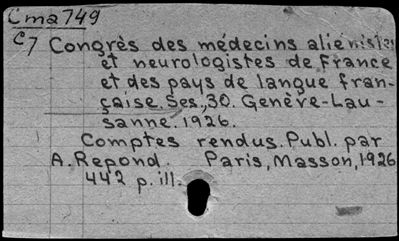 Cma749
C7 Congrès des médecins alienistes
et neurologistes de France
et des pays de langue fran-
çaise. Ses., 30. Genève-Lau-
sanne. 1926.
Comptes rendus. Publ. par
A. Repond. Paris, Masson, 1926
442 p. ill.